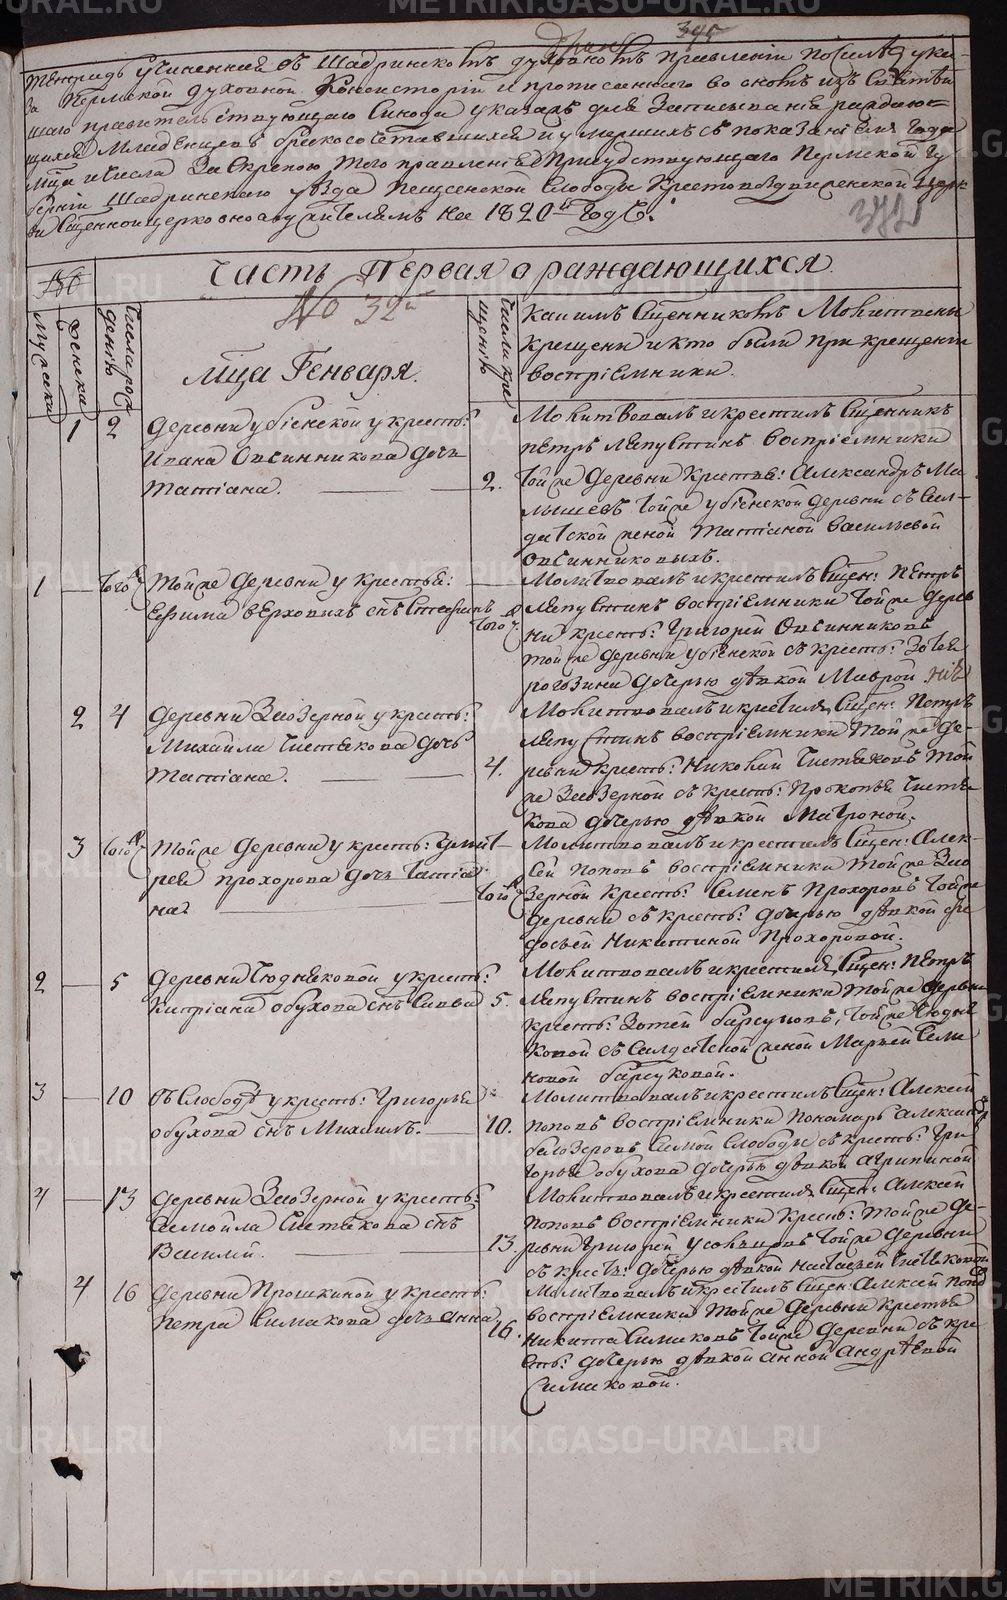 345
Тетрадь учиненная въ Шадринскомъ духовномъ правленіи по силѣ ука-
за Пермской духовной Консисторіи и прописаннаго во ономъ изъ Святѣй
шаго правительствующаго Синода указа для записыванія раждаю-
щихся младенцевъ бракосочетавшихся и умершихъ съ показаніемъ года
мца и числа за скрепою того правленія Присудствующаго Пермской гу
берніи Шадринскаго уѣзда Пещанской слободы Крестовоздвиженской церк
ви Сщенноцерковнослужителямъ на 1820й Годъ.
Часть Первая о раждающихся
№ 32й
Мужеска
Женска
Числа рож
деній
Мца Генваря.
Числа кре
щеній
Какимъ Сщенникомъ Молитвены
крещены и кто были при крещеніи
воспріемники.
1 2 Деревни убіенской у крестья:
Ивана Овсинникова дочь
Татіана.
2.
Молитвовалъ и крестилъ Сщенникъ
Петръ Лепустинъ воспріемники
Той же Деревни Крестья: Александръ Ма
лышевъ той же убіенской деревни съ Сал-
датской женой Татіаной Васильевой
Овсинниковыхъ.
1 того Той же деревни у крестья:
Ефима Верховыхъ снъ Стефанъ
того
Молитвовалъ и крестилъ Сщен: Петръ
Лепустинъ воспріемники той же дерев
ни крест: Григорей Овсинниковъ
той же деревни убіенской съ крест: Зотея
рогозина дочерью дѣвкой Маврой
2 4 Деревни Заозерной у крест:
Михайла Чистякова дочь
Татіана.
4.
Молитвовалъ и крестилъ Сщен: Петръ
Лепустинъ воспріемники той же де-
ревни крест: Николай Чистяковъ той
же Заозерной съ крест: Прокопья Чистя
кова дочерью дѣвкой Матроной.
3 того Той же деревни у крест: Дмит-
рея прохорова дочь Татіа
на.
того
Молитвовалъ и крестилъ Сщен: Алек-
сѣй Поповъ воспріемники той же Зао
зерной Крест: Семенъ Прохоровъ той же
деревни съ крест: дочерью дѣвкой Фе
досьей Никитиной Прохоровой.
2 5 Деревни Юдняковой у крест:
Кипріана обухова снъ Савва
5.
Молитвовалъ и крестилъ Сщен: Петръ
Лепустинъ воспріемники той же деревни
крест: Зотей Барсуковъ, той же Юдня
ковой съ Салдатской женой Марьей Семе
новой барсуковой.
3 10 Въ Слободѣ у крест: Григорья
обухова снъ Михаилъ.
10.
Молитвовалъ и крестилъ Сщен: Алексѣй
Поповъ воспріемники Пономарь Александръ
белозеровъ самой Слободы съ крест: Гри
горья обухова дочерью дѣвкой Агрипиной
4 13 Деревни Заозерной у крест:
Самойла Чистякова снъ
Василій.
13.
Молитвовалъ и крестилъ Сщен: Алексей
Поповъ воспріемники Крест: той же де-
ревни Григорей Усольцовъ той же деревни
съ крест: дочерью дѣвкой Настасьей Чистяковой
4 16 Деревни Прошкиной у крест:
Петра Симакова дочь Анна
16.
Молитвовалъ и крестилъ Сщен: Алексей Попов
воспріемники той же Деревни Крестья
Никита Симаковъ той же Деревни съ кре
сть: дочерью дѣвкой Анной Андрѣевой
Симаковой.
METRIKI.GASO-URAL.RU